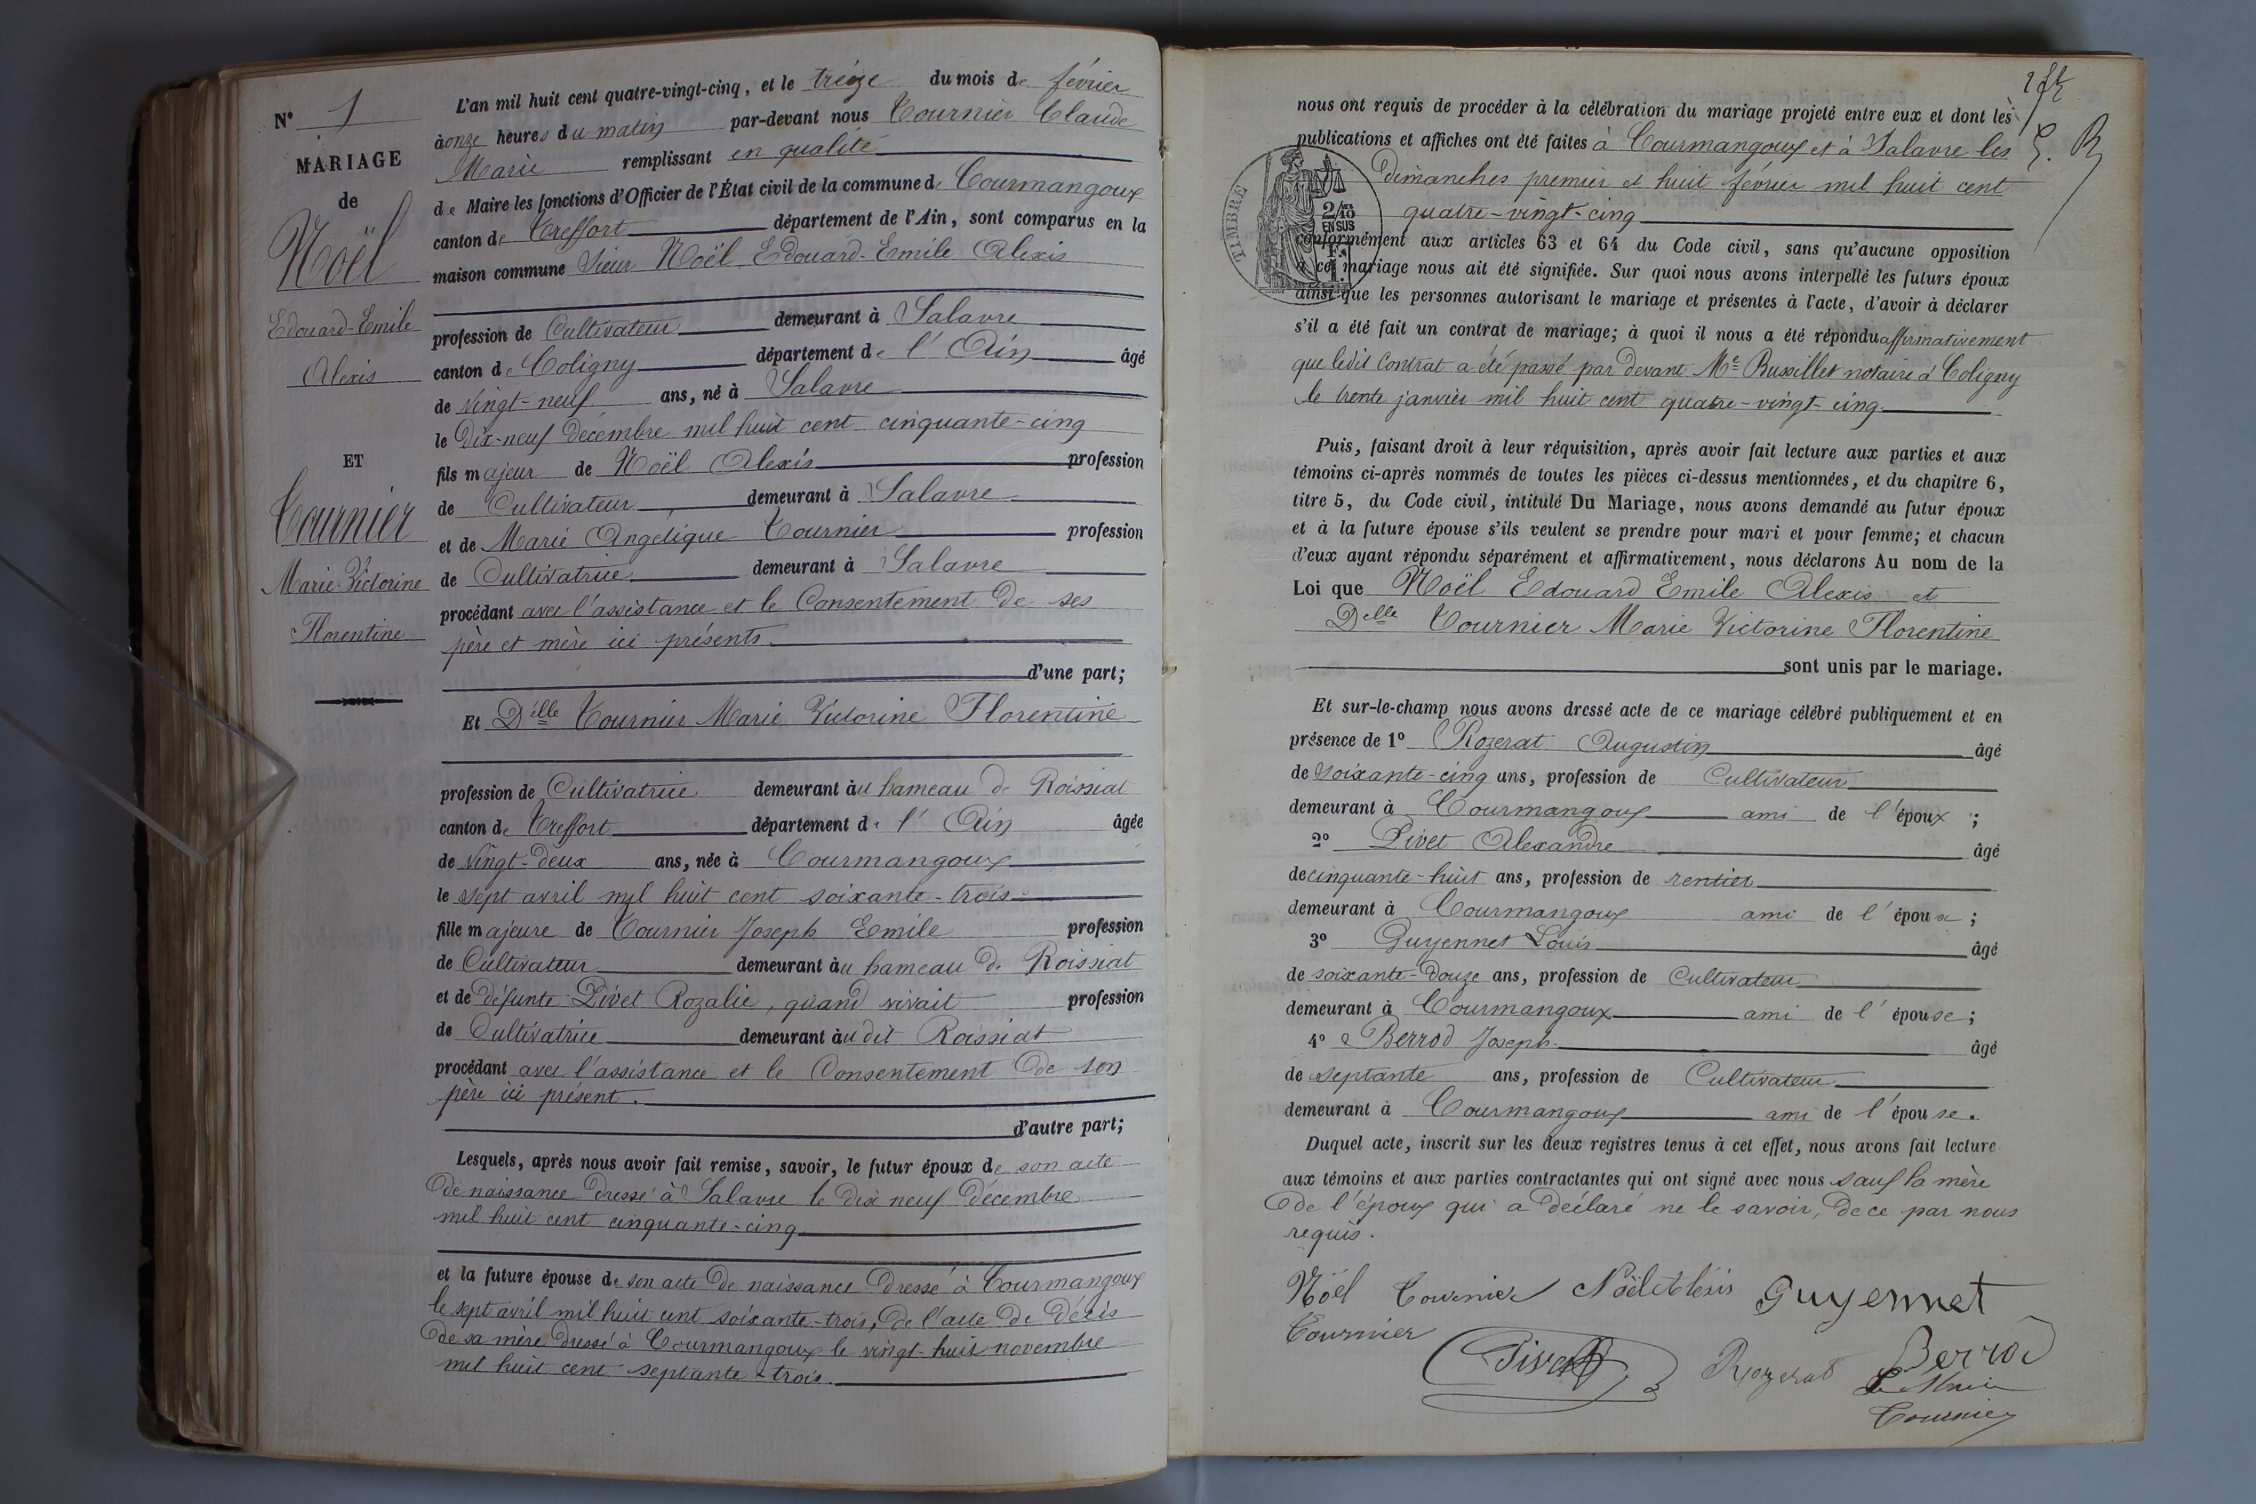 N° 1
MARIAGE
de
Noël
Edouard-Emile
Alexis
ET
Tournier
Marie Victorine
Florentine
L'an mil huit cent quatre-vingt-cinq, et le treize du mois de février
à onze heures du matin par-devant nous Tournier Claude
Marie remplissant en qualité
de Maire les fonctions d'Officier de l'État civil de la commune de Courmangoux
canton de Treffort département de l'Ain, sont comparus en la
maison commune Sieur Noël Edouard-Emile Alexis
profession de Cultivateur demeurant à Salavre
canton de Coligny département de l'Ain âgé
de vingt-neuf ans, né à Salavre
le Dix-neuf Décembre mil huit cent cinquante-cinq
fils majeur de Noël Alexis profession
de Cultivateur demeurant à Salavre
et de Marie Angélique Tournier profession
de Cultivatrice demeurant à Salavre
procédant avec l'assistance et le Consentement de ses
père et mère ici présents.
d'une part;
Et Delle Tournier Marie Victorine Florentine
profession de Cultivatrice demeurant au hameau de Roissiat
canton de Treffort département de l'Ain âgée
de vingt-deux ans, née à Courmangoux
le sept avril mil huit cent soixante-trois
fille majeure de Tournier Joseph Emile profession
de Cultivateur demeurant au hameau de Roissiat
et de défunte Pivet Rozalie, quand vivait profession
de Cultivatrice demeurant audit Roissiat
procédant avec l'assistance et le Consentement de son
père ici présent.
d'autre part;
Lesquels, après nous avoir fait remise, savoir, le futur époux de son acte
de naissance dressé à Salavre le dix neuf décembre
mil huit cent cinquante-cinq
et la future épouse de son acte de naissance dressé à Courmangoux
le sept avril mil huit cent soixante-trois, de l'acte de décès
de sa mère dressé à Courmangoux le vingt-huit novembre
mil huit cent septante-trois.
nous ont requis de procéder à la célébration du mariage projeté entre eux et dont les
publications et affiches ont été faites à Courmangoux et à Salavre les
Dimanches premier et huit février mil huit cent
quatre-vingt-cinq
TIMBRE
2/10 EN SUS
conformément aux articles 63 et 64 du Code civil, sans qu'aucune opposition
à ce mariage nous ait été signifiée. Sur quoi nous avons interpellé les futurs époux
ainsi que les personnes autorisant le mariage et présentes à l'acte, d'avoir à déclarer
s'il a été fait un contrat de mariage; à quoi il nous a été répondu affirmativement
que ledit Contrat a été passé par devant Me Buxillet notaire à Coligny
le trente janvier mil huit cent quatre-vingt-cinq.
Puis, faisant droit à leur réquisition, après avoir fait lecture aux parties et aux
témoins ci-après nommés de toutes les pièces ci-dessus mentionnées, et du chapitre 6,
titre 5, du Code civil, intitulé Du Mariage, nous avons demandé au futur époux
et à la future épouse s'ils veulent se prendre pour mari et pour femme; et chacun
d'eux ayant répondu séparément et affirmativement, nous déclarons Au nom de la
Loi que Noël Edouard Emile Alexis et
Delle Tournier Marie Victorine Florentine
sont unis par le mariage.
Et sur-le-champ nous avons dressé acte de ce mariage célébré publiquement et en
présence de 1° Rozerat Augustin âgé
de soixante-cinq ans, profession de Cultivateur
demeurant à Courmangoux ami de l'époux ;
2° Pivet Alexandre âgé
de cinquante-huit ans, profession de rentier
demeurant à Courmangoux ami de l'époux ;
3° Guyennet Louis âgé
de soixante-douze ans, profession de Cultivateur
demeurant à Courmangoux ami de l'épouse ;
4° Berrod Joseph âgé
de septante ans, profession de Cultivateur
demeurant à Courmangoux ami de l'épouse.
Duquel acte, inscrit sur les deux registres tenus à cet effet, nous avons fait lecture
aux témoins et aux parties contractantes qui ont signé avec nous sauf la mère
de l'époux qui a déclaré ne le savoir, de ce par nous
requis.
Noël Tournier Noël Alexis Guyennet
Tournier
Pivet Rozerat Berrod
Le Maire
Tournier